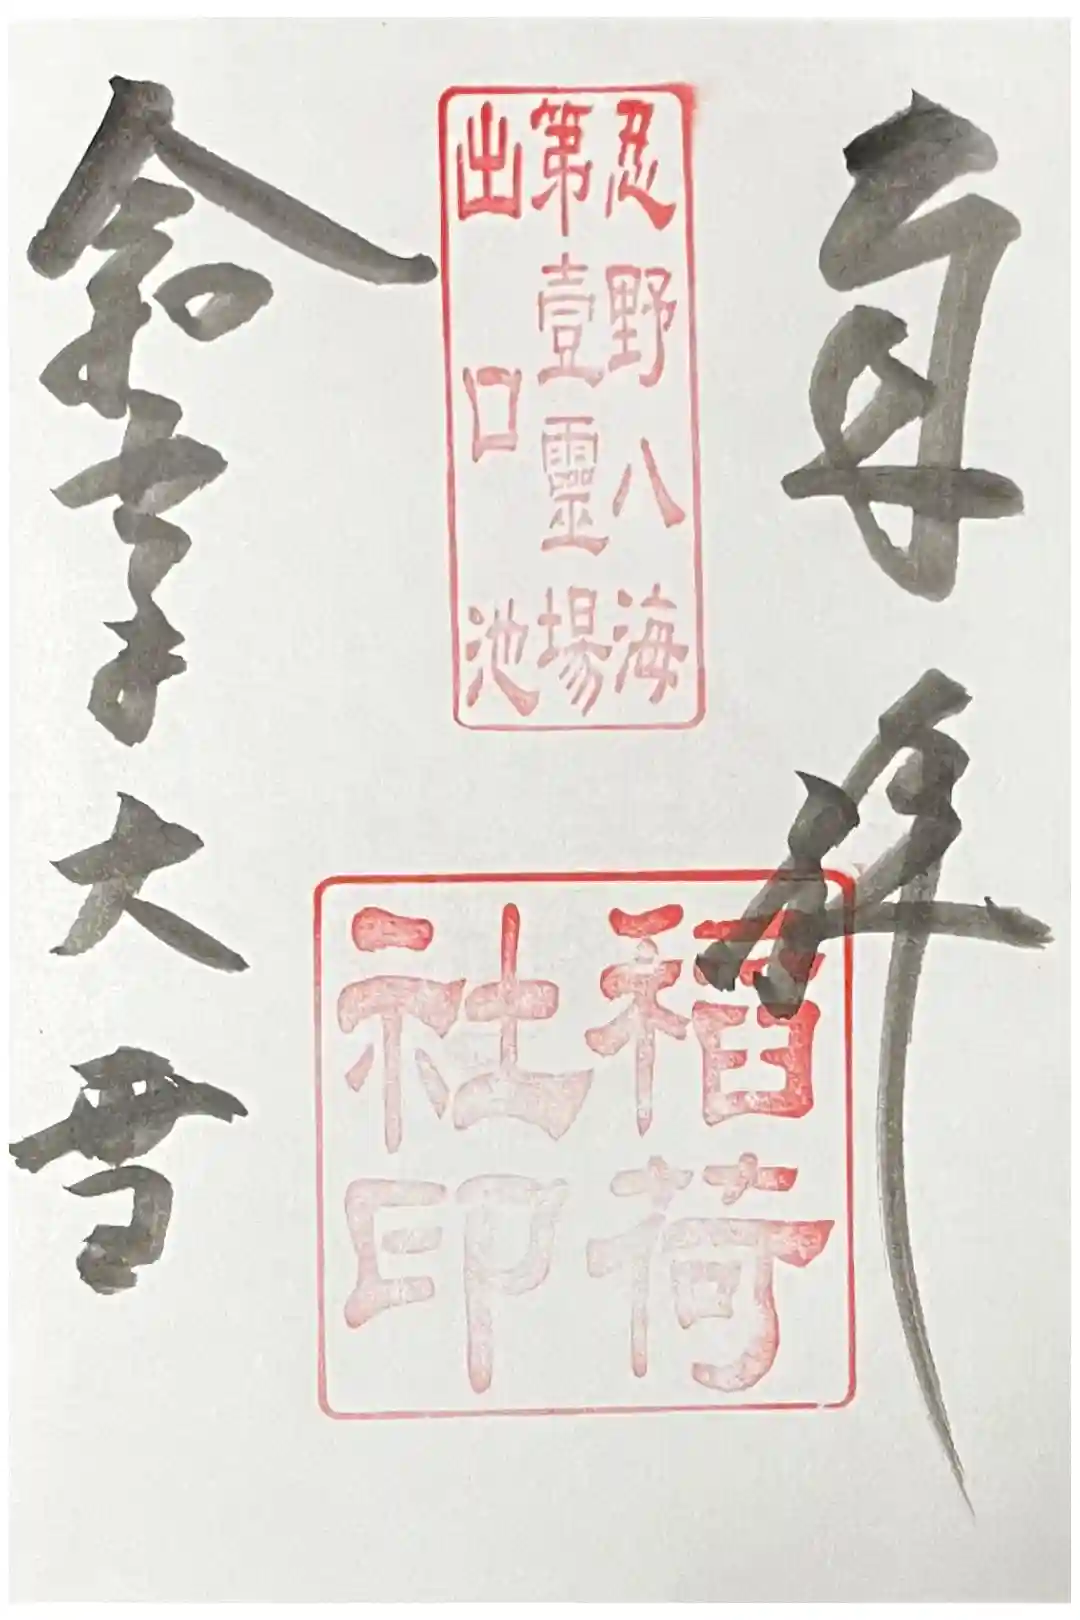 奉拝
忍野八海
第壹靈場
出口池
稲荷
社印
令和 年大雪